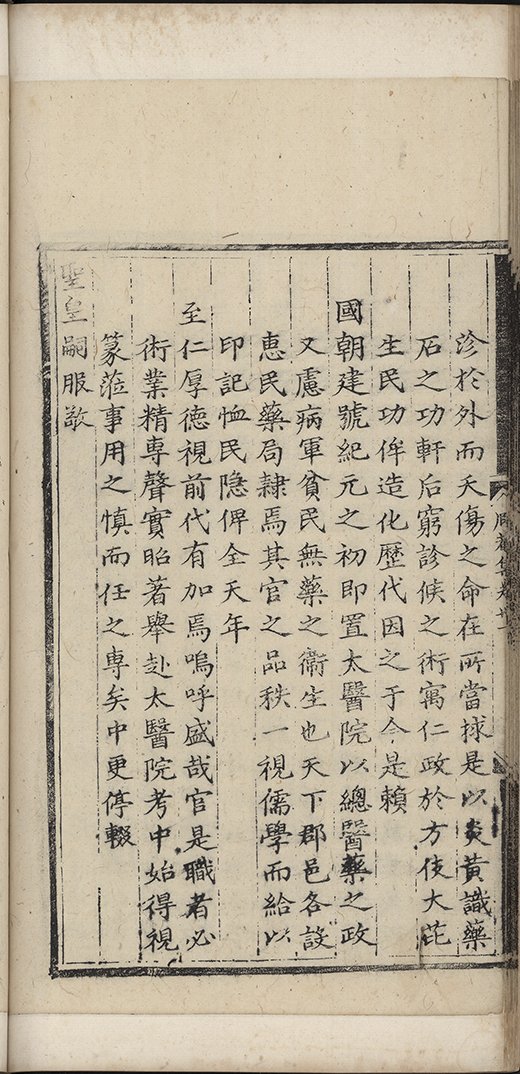 沴於外而夭傷之命在所當捄是以炎黃識藥
石之功軒后窮診候之術寓仁政於方伎大芘
生民功侔造化歷代因之于今是賴
國朝建號紀元之初即置太醫院以總醫藥之政
又慮病軍貧民無藥之衞生也天下郡邑各設
惠民藥局隷焉其官之品秩一視儒學而給以
印記恤民隱俾全天年
至仁厚徳視前代有加焉嗚呼盛哉官是職者必
術業精專聲實昭著舉赴太醫院考中始得視
篆蒞事用之慎而任之專矣中更停輟
聖皇嗣服敬